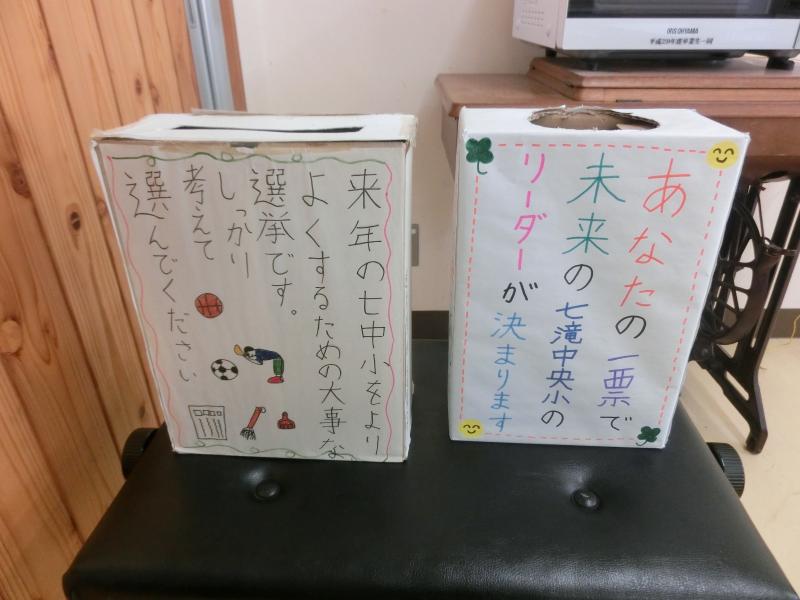 来年の七中小をより
よくするための大事な
選挙です。
しっかり
考えて
選んでください
あなたの一票で
未来の七滝中央小の
リーダーが決まります
IRIS OHYAMA
平成29年度卒業生一同